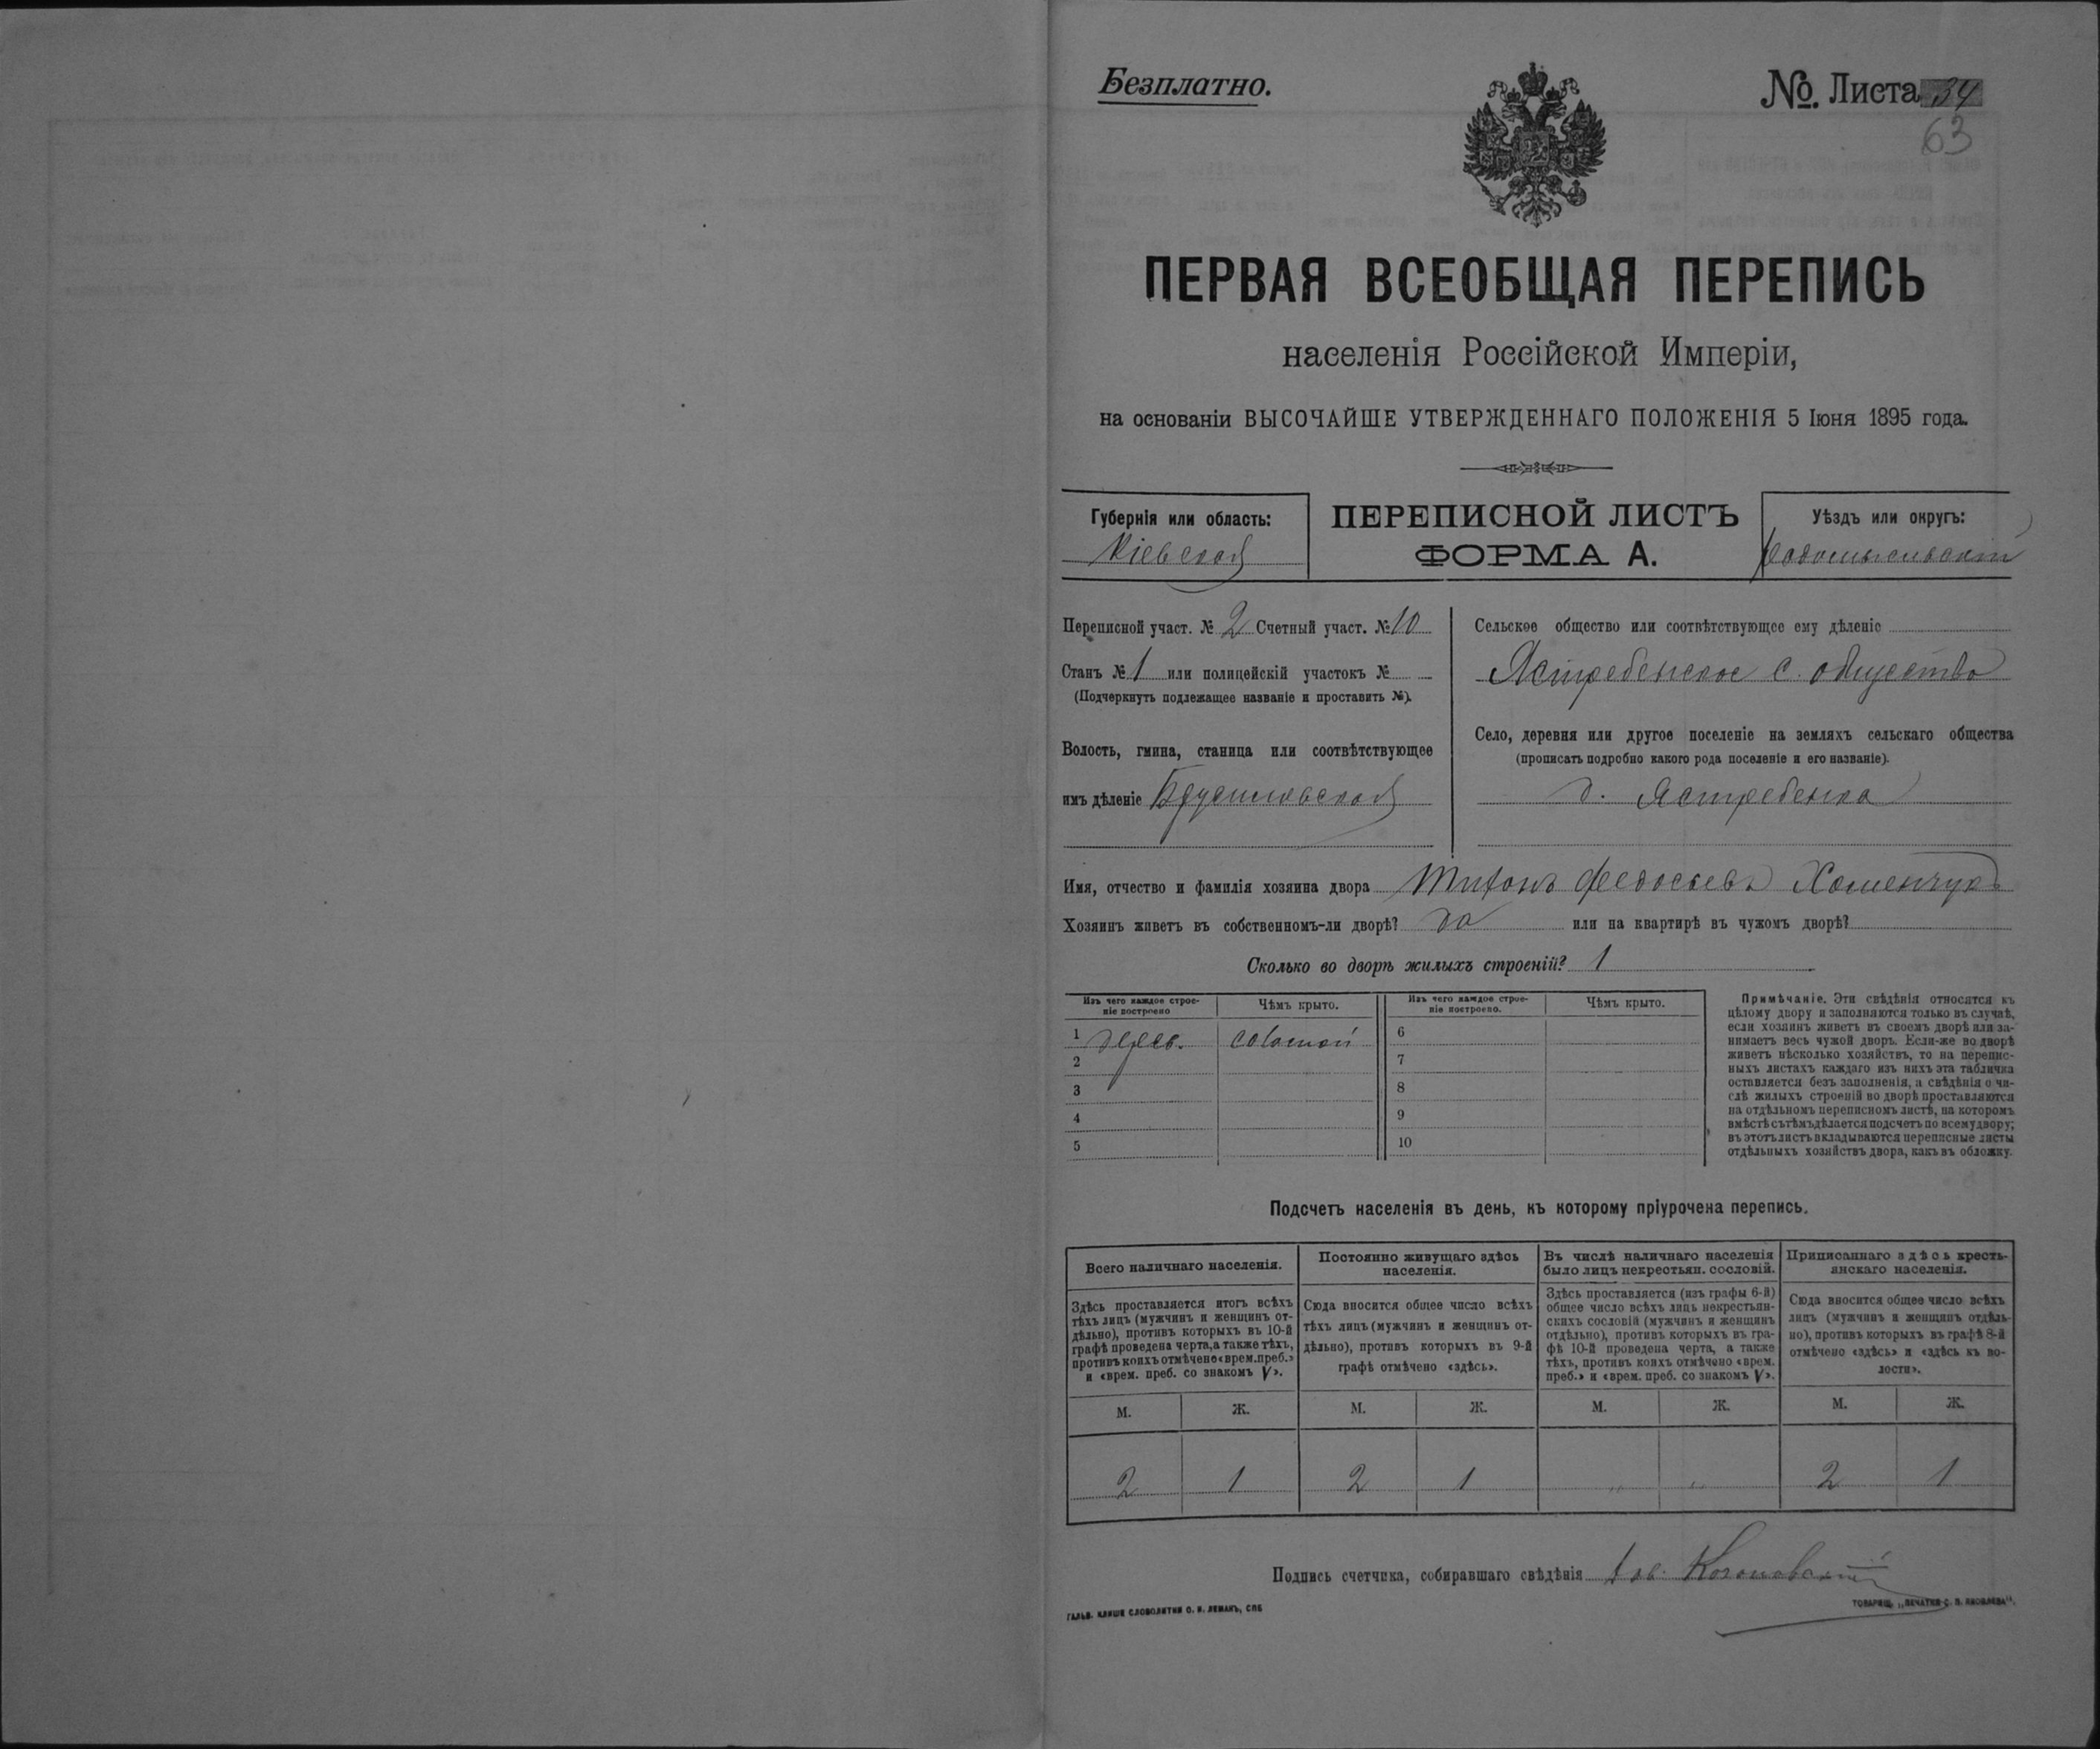 Безплатно.
№. Листа 34
63
ПЕРВАЯ ВСЕОБЩАЯ ПЕРЕПИСЬ
населенія Россійской Имперіи,
на основаніи ВЫСОЧАЙШЕ УТВЕРЖДЕННАГО ПОЛОЖЕНІЯ 5 Іюня 1895 года.
Губернія или область:
Кіевская
ПЕРЕПИСНОЙ ЛИСТЪ
ФОРМА А.
Уѣздъ или округъ:
Радомысльскій
Переписной участ. № 2 Счетный участ. № 10
Станъ № 1 или полицейскій участокъ №
(Подчеркнуть подлежащее названіе и проставить №).
Волость, гмина, станица или соотвѣтствующее
имъ дѣленіе Брусиловская
Сельское общество или соотвѣтствующее ему дѣленіе
Ястребенское с. общество
Село, деревня или другое поселеніе на земляхъ сельскаго общества
(прописать подробно какого рода поселеніе и его названіе).
д. Ястребенка
Имя, отчество и фамилія хозяина двора Тихонъ Федосѣевъ Хоменчукъ
Хозяинъ живетъ въ собственномъ-ли дворѣ? да или на квартирѣ въ чужомъ дворѣ?
Сколько во дворѣ жилыхъ строеній? 1
Изъ чего каждое строе-
ніе построено
Чѣмъ крыто.
Изъ чего каждое строе-
ніе построено.
Чѣмъ крыто.
1 дерев. соломой 6
2 7
3 8
4 9
5 10
Примѣчаніе. Эти свѣдѣнія относятся къ
цѣлому двору и заполняются только въ случаѣ,
если хозяинъ живетъ въ своемъ дворѣ или за-
нимаетъ весь чужой дворъ. Если-же во дворѣ
живетъ нѣсколько хозяйствъ, то на перепис-
ныхъ листахъ каждаго изъ нихъ эта табличка
оставляется безъ заполненія, а свѣдѣнія о чи-
слѣ жилыхъ строеній во дворѣ проставляются
на отдѣльномъ переписномъ листѣ, на которомъ
вмѣстѣ съ тѣмъ дѣлается подсчетъ по всему двору;
въ этотъ листъ вкладываются переписные листы
отдѣльныхъ хозяйствъ двора, какъ въ обложку.
Подсчетъ населенія въ день, къ которому пріурочена перепись.
Всего наличнаго населенія.
Здѣсь проставляется итогъ всѣхъ
тѣхъ лицъ (мужчинъ и женщинъ от-
дѣльно), противъ которыхъ въ 10-й
графѣ проведена черта, а также тѣхъ,
противъ коихъ отмѣчено «врем. преб.»
и «врем. преб. со знакомъ V».
Постоянно живущаго здѣсь
населенія.
Сюда вносится общее число всѣхъ
тѣхъ лицъ (мужчинъ и женщинъ от-
дѣльно), противъ которыхъ въ 9-й
графѣ отмѣчено «здѣсь».
Въ числѣ наличнаго населенія
было лицъ некрестьян. сословій.
Здѣсь проставляется (изъ графы 6-й)
общее число всѣхъ лицъ некрестьян-
скихъ сословій (мужчинъ и женщинъ
отдѣльно), противъ которыхъ въ гра-
фѣ 10-й проведена черта, а также
тѣхъ, противъ коихъ отмѣчено «врем.
преб.» и «врем. преб. со знакомъ V».
Приписаннаго здѣсь кресть-
янскаго населенія.
Сюда вносится общее число всѣхъ
лицъ (мужчинъ и женщинъ отдѣль-
но), противъ которыхъ въ графѣ 8-й
отмѣчено «здѣсь» и «здѣсь къ во-
лости».
М. Ж. М. Ж. М. Ж. М. Ж.
2 1 2 1 " " 2 1
Подпись счетчика, собиравшаго свѣдѣнія
ГАЛЬВ. КЛИШЕ СЛОВОЛИТНИ О. И. ЛЕМАНЪ, СПБ
ТОВАРИЩ. „ПЕЧАТНЯ С. П. ЯКОВЛЕВА“.